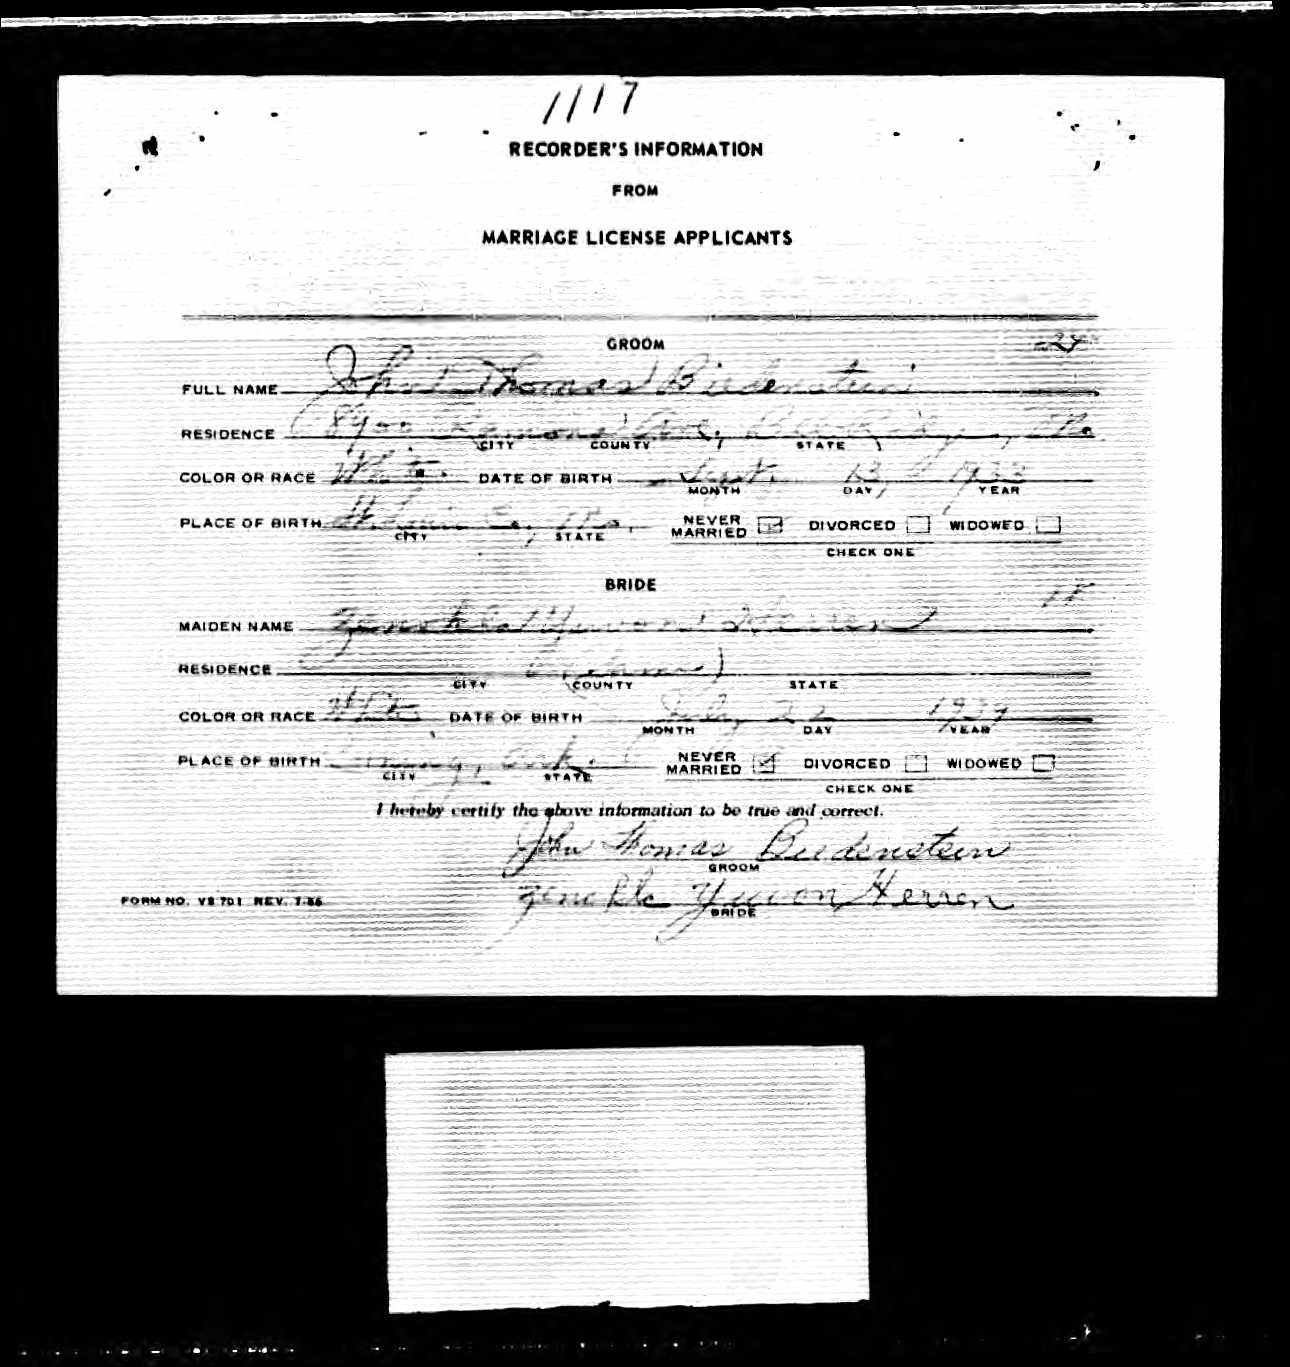 1117
RECORDER'S INFORMATION
FROM
MARRIAGE LICENSE APPLICANTS
GROOM 24
FULL NAME John Thomas Biedenstein
RESIDENCE 8900 Ave, Mo
CITY COUNTY STATE
COLOR OR RACE White DATE OF BIRTH Sept. 13, 1933
MONTH DAY YEAR
PLACE OF BIRTH St. Louis Co, Mo. NEVER MARRIED DIVORCED WIDOWED
CITY STATE
CHECK ONE
BRIDE 18
MAIDEN NAME Yuvon Herren
RESIDENCE
CITY COUNTY STATE
COLOR OR RACE White DATE OF BIRTH July 22 1939
MONTH DAY YEAR
PLACE OF BIRTH Ark. NEVER MARRIED DIVORCED WIDOWED
CITY STATE
CHECK ONE
I hereby certify the above information to be true and correct.
John Thomas Biedenstein
GROOM
Yuvon Herren
FORM NO. VS 701 REV.
BRIDE